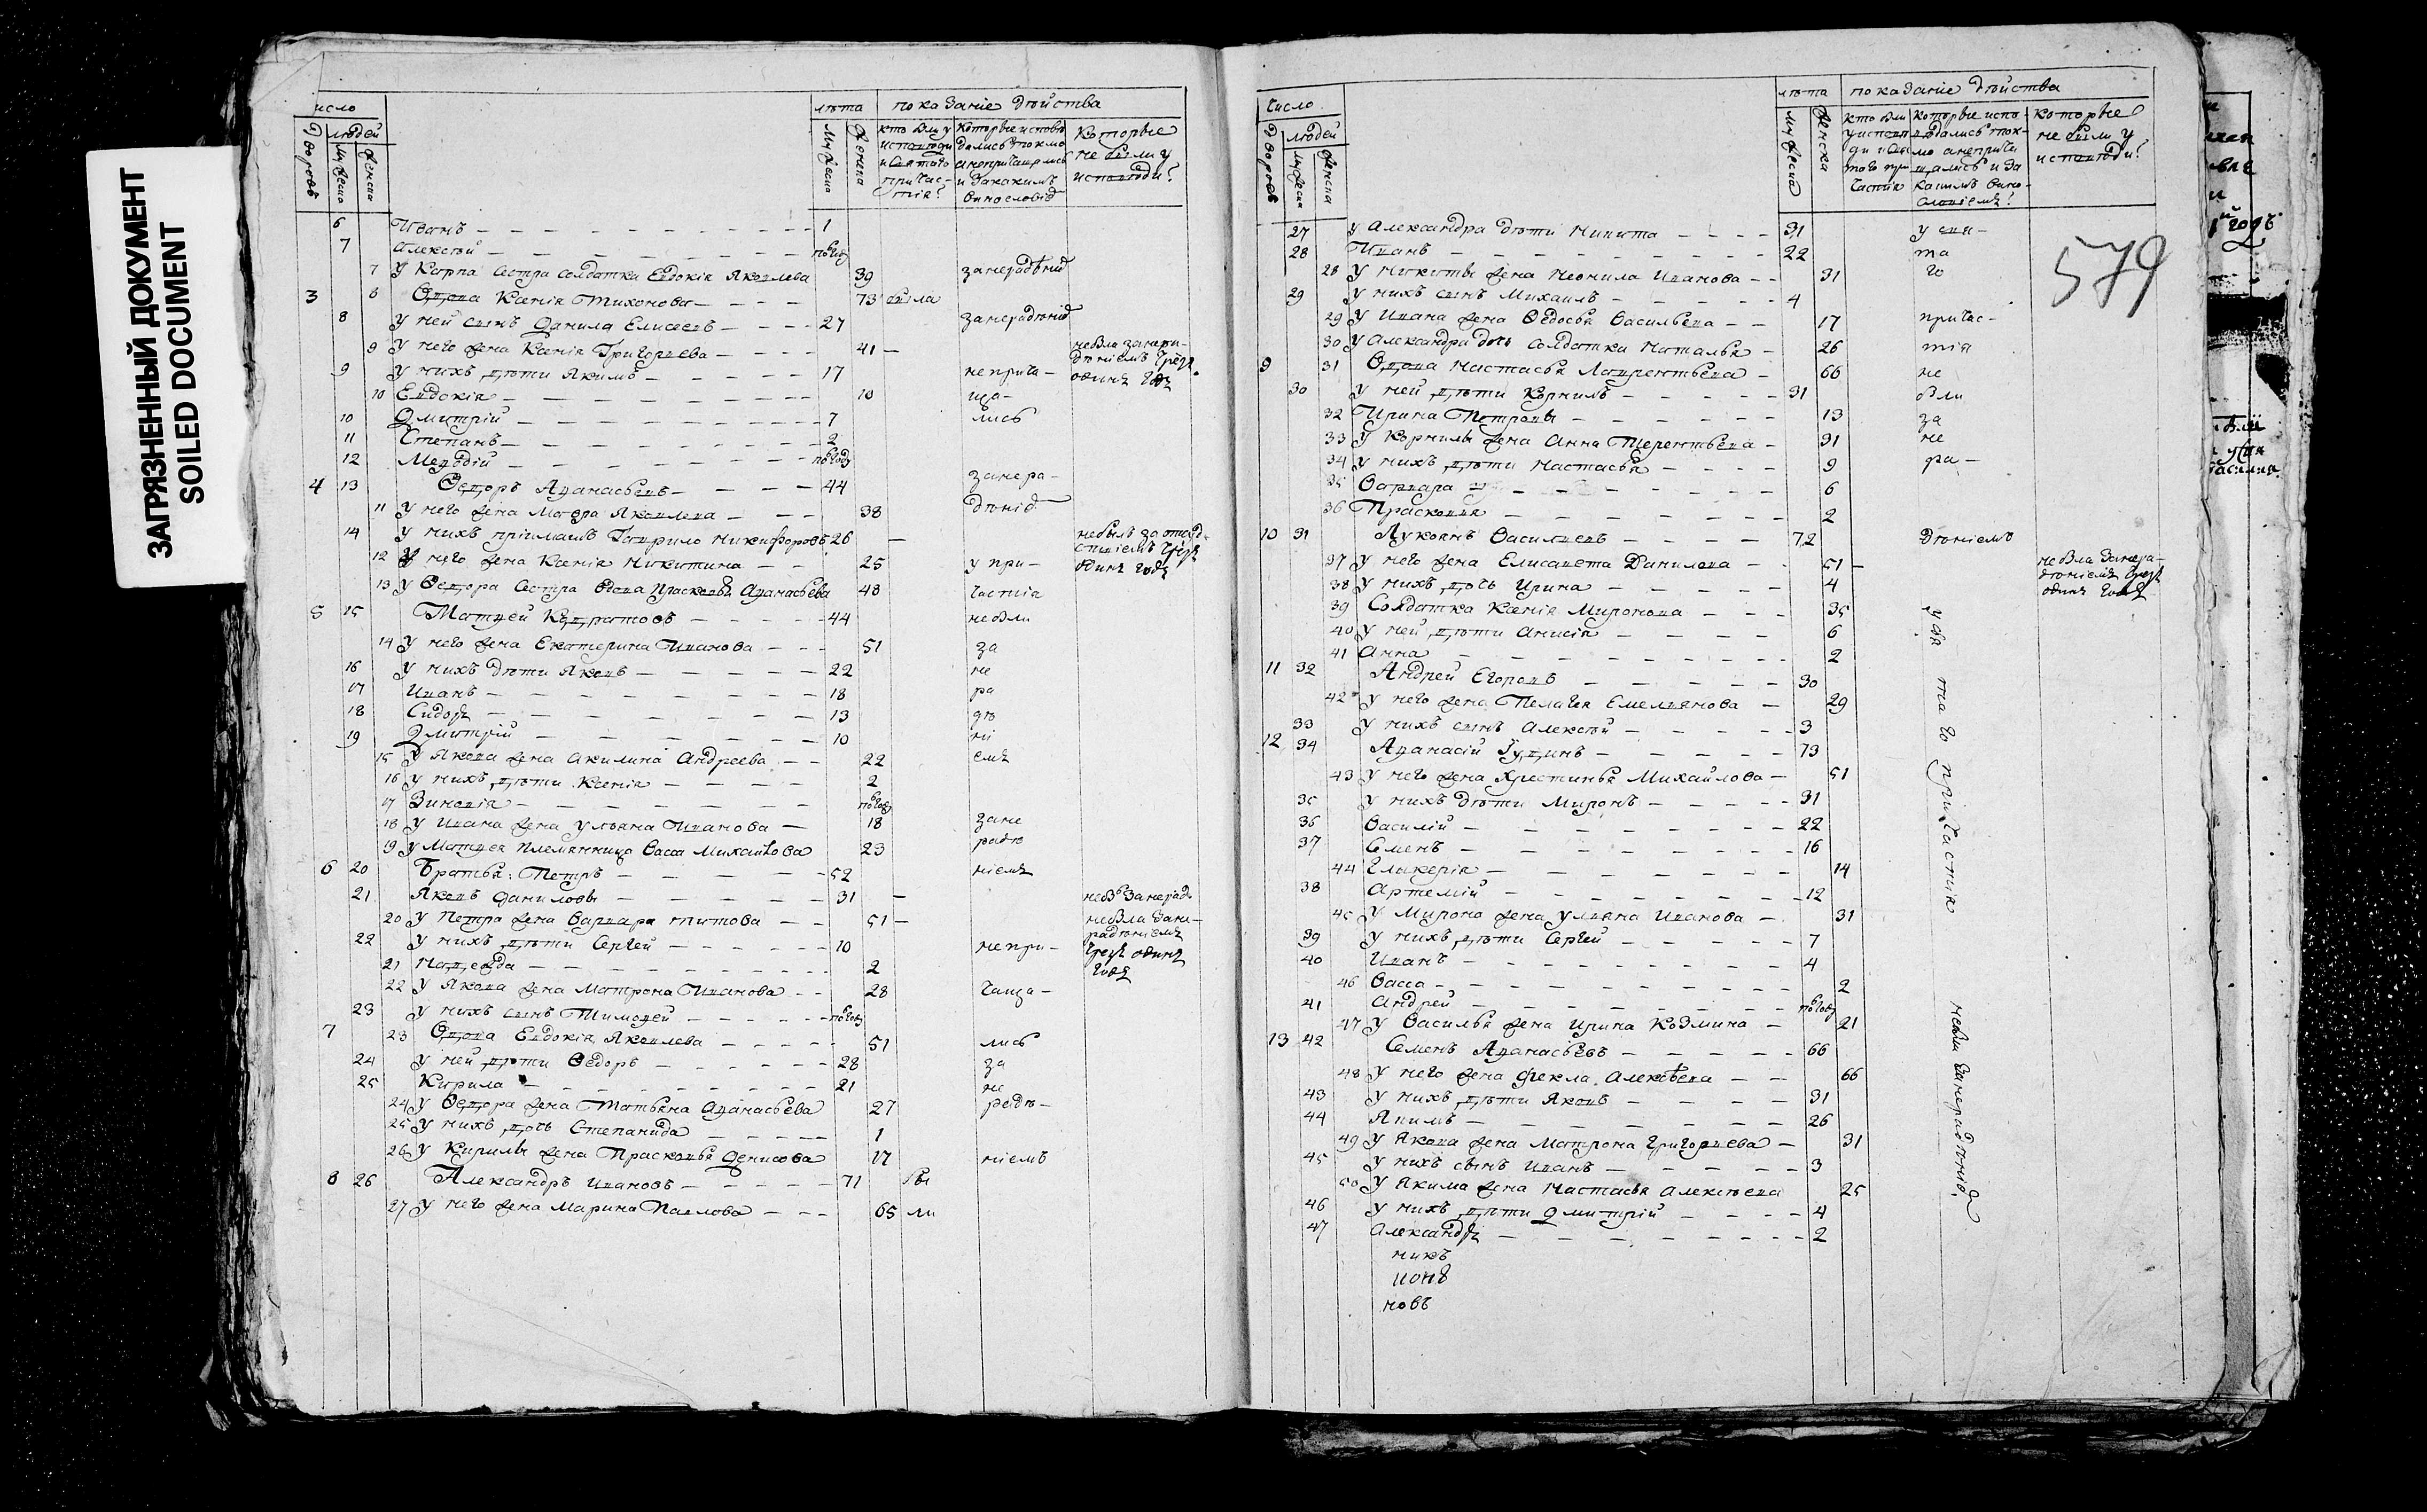 ЗАГРЯЗНЕННЫЙ ДОКУМЕНТ
SOILED DOCUMENT
число
лѣта показаніе дѣйства
дворовъ людей
мужеска женска
мужеска женска
кто были у исповѣди и святаго причастія?
которые исповѣдались токмо а не причащались и за какимъ винословіем
которые не были у исповѣди?
6 Иванъ 1
7 Алексѣй полгоду
7 У Карпа сестра солдатка Евдокія Яковлева 39 занерадѣніе
3 8 Вдова Ксенія Тихонова 73 была
8 У ней сынъ Данила Елисеевъ 27 занерадѣніе
9 У него жена Ксенія Григорьева 41 не была занерадѣніемъ чрезъ одинъ годъ
9 У нихъ дѣти Якимъ 17 не прича-
10 Евдокія 10 ща-
10 Дмитрій 7 лись
11 Степанъ 2
12 Меѳодій полгоду
4 13 Ѳедоръ Аѳанасьевъ 44 занера-
11 У него жена Мавра Яковлева 38 дѣніе
14 У нихъ пріимашъ Гаврило Никифоровъ 26 не былъ за отсудствіемъ чрезъ одинъ годъ
12 У него жена Ксенія Никитина 25 у при-
13 У Ѳедора сестра вдова Прасковья Аѳанасьева 48 частія
5 15 Матвей Кудратовъ 44 не были
14 У него жена Екатерина Иванова 51 за
16 У нихъ дѣти Яковъ 22 не
17 Иванъ 18 ра
18 Сидоръ 13 дѣ
19 Дмитрій 10 ні
15 У Якова жена Акилина Андреева 22 емъ
16 У нихъ дѣти Ксенія 2
17 Зиновія полгоду
18 У Ивана жена Ульяна Иванова 18 зане
19 У Матвея племянница Васса Михайлова 23 радѣ
6 20 Братья: Петръ 52 ніемъ
21 Яковъ Даниловы 31 не бъ занерад.
20 У Петра жена Варвара Титова 51 не была занерадѣніемъ
22 У нихъ дѣти Сергей 10 не при- чрезъ одинъ годъ
21 Надежда 2
22 У Якова жена Матрона Иванова 28 чаща-
23 У нихъ сынъ Тимоѳей полгоду
7 23 Вдова Евдокія Яковлева 51 лись
24 У ней дѣти Ѳедоръ 28 за
25 Кирила 21 не
24 У Ѳедора жена Татьяна Аѳанасьева 27 радѣ-
25 У нихъ дочь Степанида 1
26 У Кирилы жена Прасковья Денисова 17 ніемъ
8 26 Александръ Ивановъ 71 бы
27 У него жена Марина Павлова 65 ли
число
лѣта показаніе дѣйства
дворовъ людей
мужеска женска
мужеска женска
кто были у исповѣди и святаго причастія
которые исповѣдались токмо а не причащались и за какимъ винословіемъ?
которые не были у исповѣди?
579
27 У Александра дѣти Никита 31 у свя-
28 Иванъ 22 та
28 У Никиты жена Неонила Иванова 31 го
29 У нихъ сынъ Михаилъ 4
29 У Ивана жена Ѳедосья Васильева 17 причас-
30 У Александра дочь солдатка Наталья 26 тія
9 31 Вдова Настасья Лаврентьева 66 не
30 У ней дѣти Корнилъ 31 были
32 Ирина Петровы 13 за
33 У Корнилы жена Анна Терентьева 31 не
34 У нихъ дѣти Настасья 9 ра-
35 Варвара 6
36 Прасковья 2
10 31 Лукоянъ Васильевъ 72 дѣніемъ
37 У него жена Елисавета Данилова 51 не была занерадѣніемъ чрезъ одинъ годъ
38 У нихъ дочь Ирина 4
39 Солдатка Ксенія Миронова 35
40 У ней дѣти Анисія 6
41 Анна 2
11 32 Андрей Егоровъ 30
42 У него жена Пелагея Емельянова 29
33 У нихъ сынъ Алексѣй 3
12 34 Аѳанасій Іудинъ 73
43 У него жена Христинья Михайлова 51
35 У нихъ дѣти Миронъ 31
36 Василій 22
37 Семенъ 16
44 Гликерія 14
38 Артемій 12
45 У Мирона жена Ульяна Иванова 31
39 У нихъ дѣти Сергей 7
40 Иванъ 4
46 Васса 2
41 Андрей полгоду
47 У Василья жена Ирина Козмина 21
13 42 Семенъ Аѳанасьевъ 66
48 У него жена Фекла Алексѣева 66
43 У нихъ дѣти Яковъ 31
44 Якимъ 26
49 У Якова жена Матрона Григорьева 31
45 У нихъ сынъ Иванъ 3
50 У Якима жена Настасья Алексѣева 25
46 У нихъ дѣти Дмитрій 4
47 Александръ 2
у свя таго причастія
не были занерадѣніе
никъ
іона
новъ